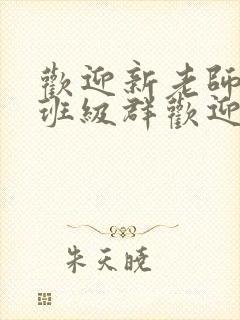 歡迎新老師
班級群歡迎
朱天曉